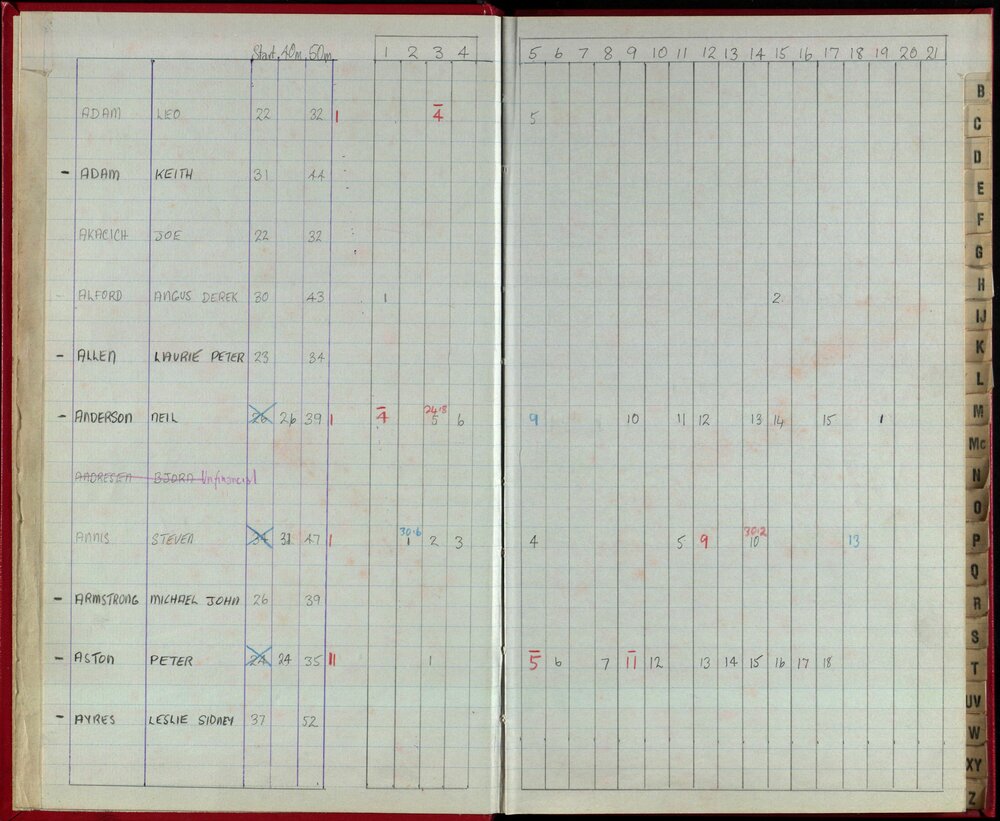 Start 40m 50m 1 2 3 4 5 6 7 8 9 10 11 12 13 14 15 16 17 18 19 20 21
ADAM LEO 22 32 I 4 5
- ADAM KEITH 31 44
AKACICH JOE 22 32
ALFORD ANGUS DEREK 30 43 1 2
- ALLEN LAURIE PETER 23 34
24.18
- ANDERSON NEIL 26 26 39 I 4 5 6 9 10 11 12 13 14 15 1
ANDRESEN BJORN Unfinancial
30.6 30.2
ANNIS STEVEN 34 31 47 I 1 2 3 4 5 9 10 13
- ARMSTRONG MICHAEL JOHN 26 39
- ASTON PETER 24 24 35 II 1 5 6 7 8 11 12 13 14 15 16 17 18
- AYRES LESLIE SIDNEY 37 52
B
C
D
E
F
G
H
IJ
K
L
M
Mc
N
O
P
Q
R
S
T
UV
W
XY
Z